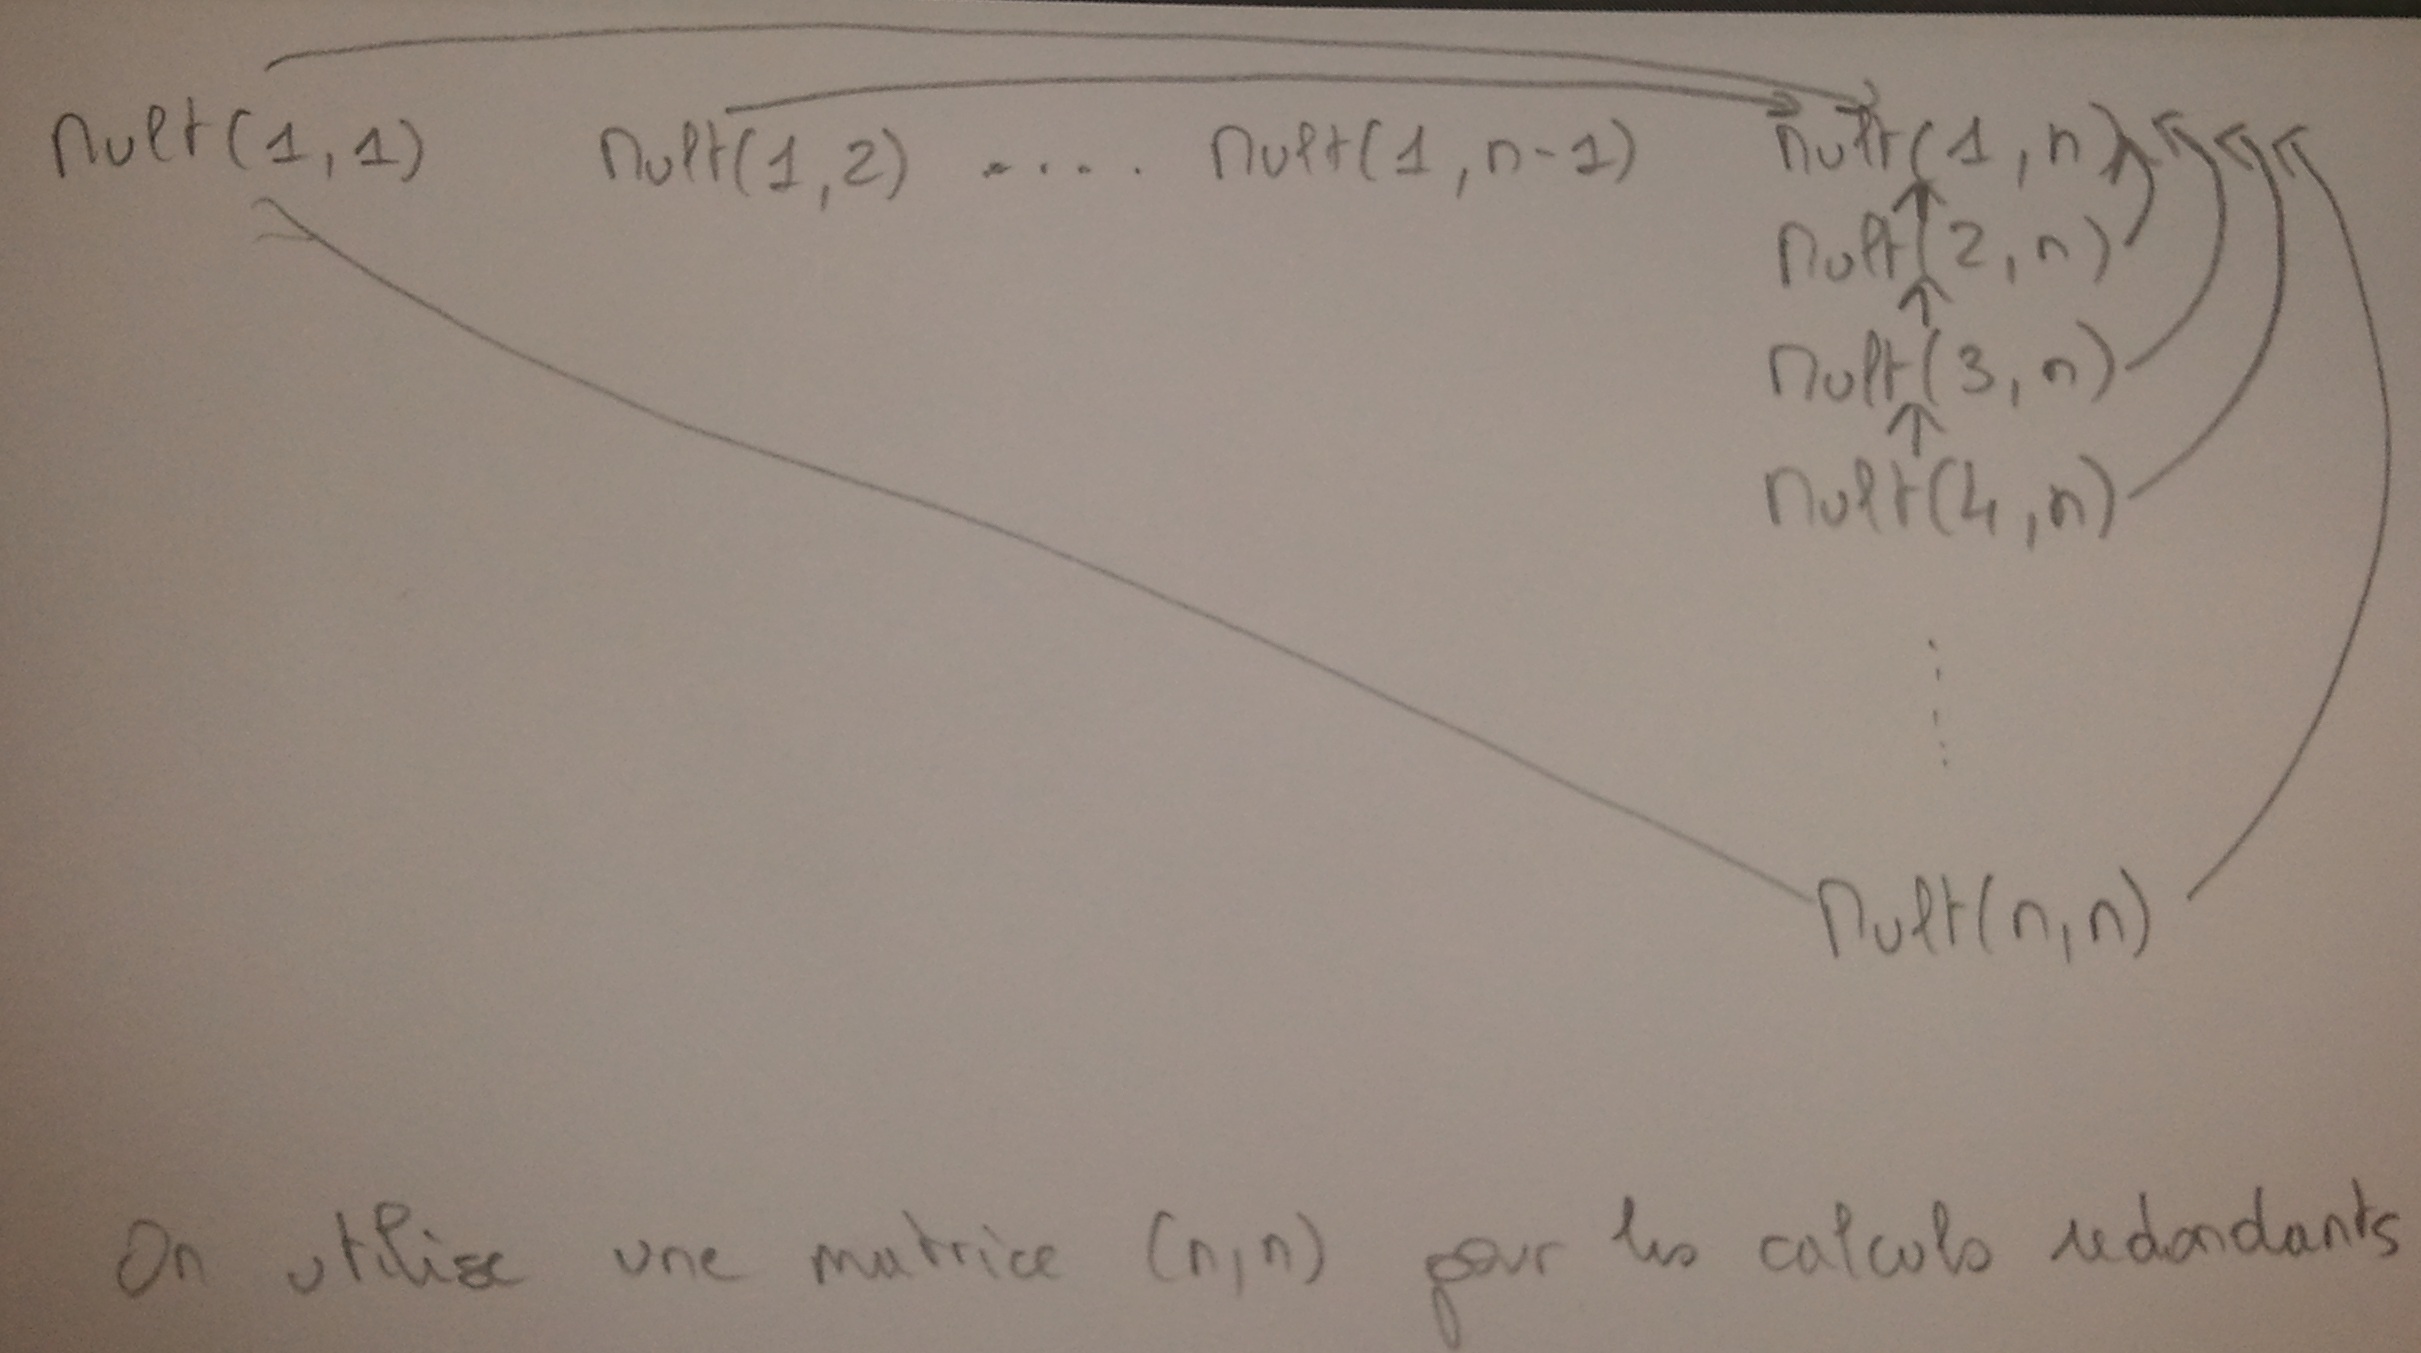 Mult(1,1) Mult(1,2) ..... Mult(1,n-1) Mult(1,n)
Mult(2,n)
Mult(3,n)
Mult(4,n)
Mult(n,n)
On utilise une matrice (n,n) pour les calculs redondants